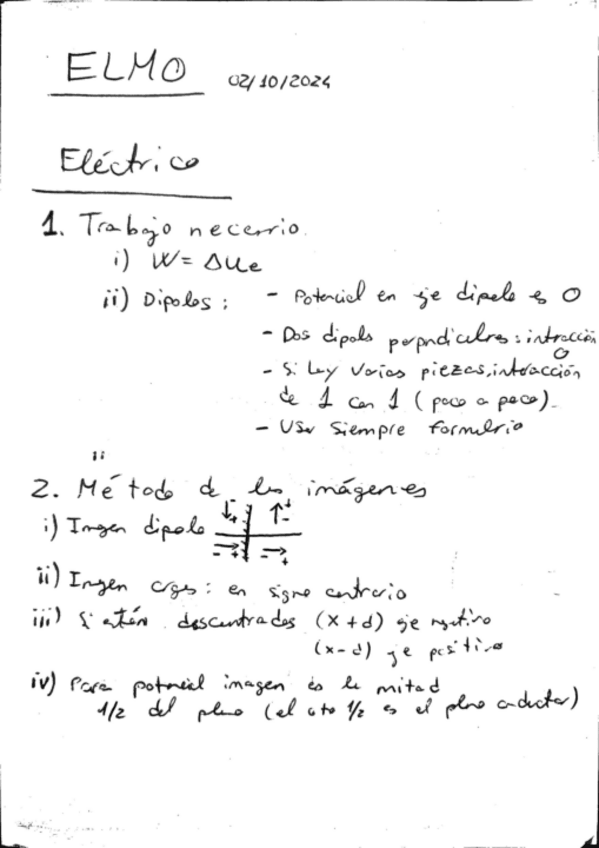 ELMO 02/10/2024
Eléctrico
1. Trabajo necerrio.
i) W = ΔUe
ii) Dipolos : - Potencial en eje dipolo es 0
- Dos dipols perpndiculres : intracción
0
- Si hay varias piezas, interacción
de 1 con 1 (poco a poco).
- Usar siempre formulrio
ii
2. Método de las imágenes
i) Imgen dipolo - + + - - + - +
ii) Imgen crgs : en signo contrario
iii) Si están descentrados (x + d) eje negtivo
(x - d) eje positivo
iv) Para potencial imagen es la mitad
1/2 del plano (el oto 1/2 es el plno conductor)